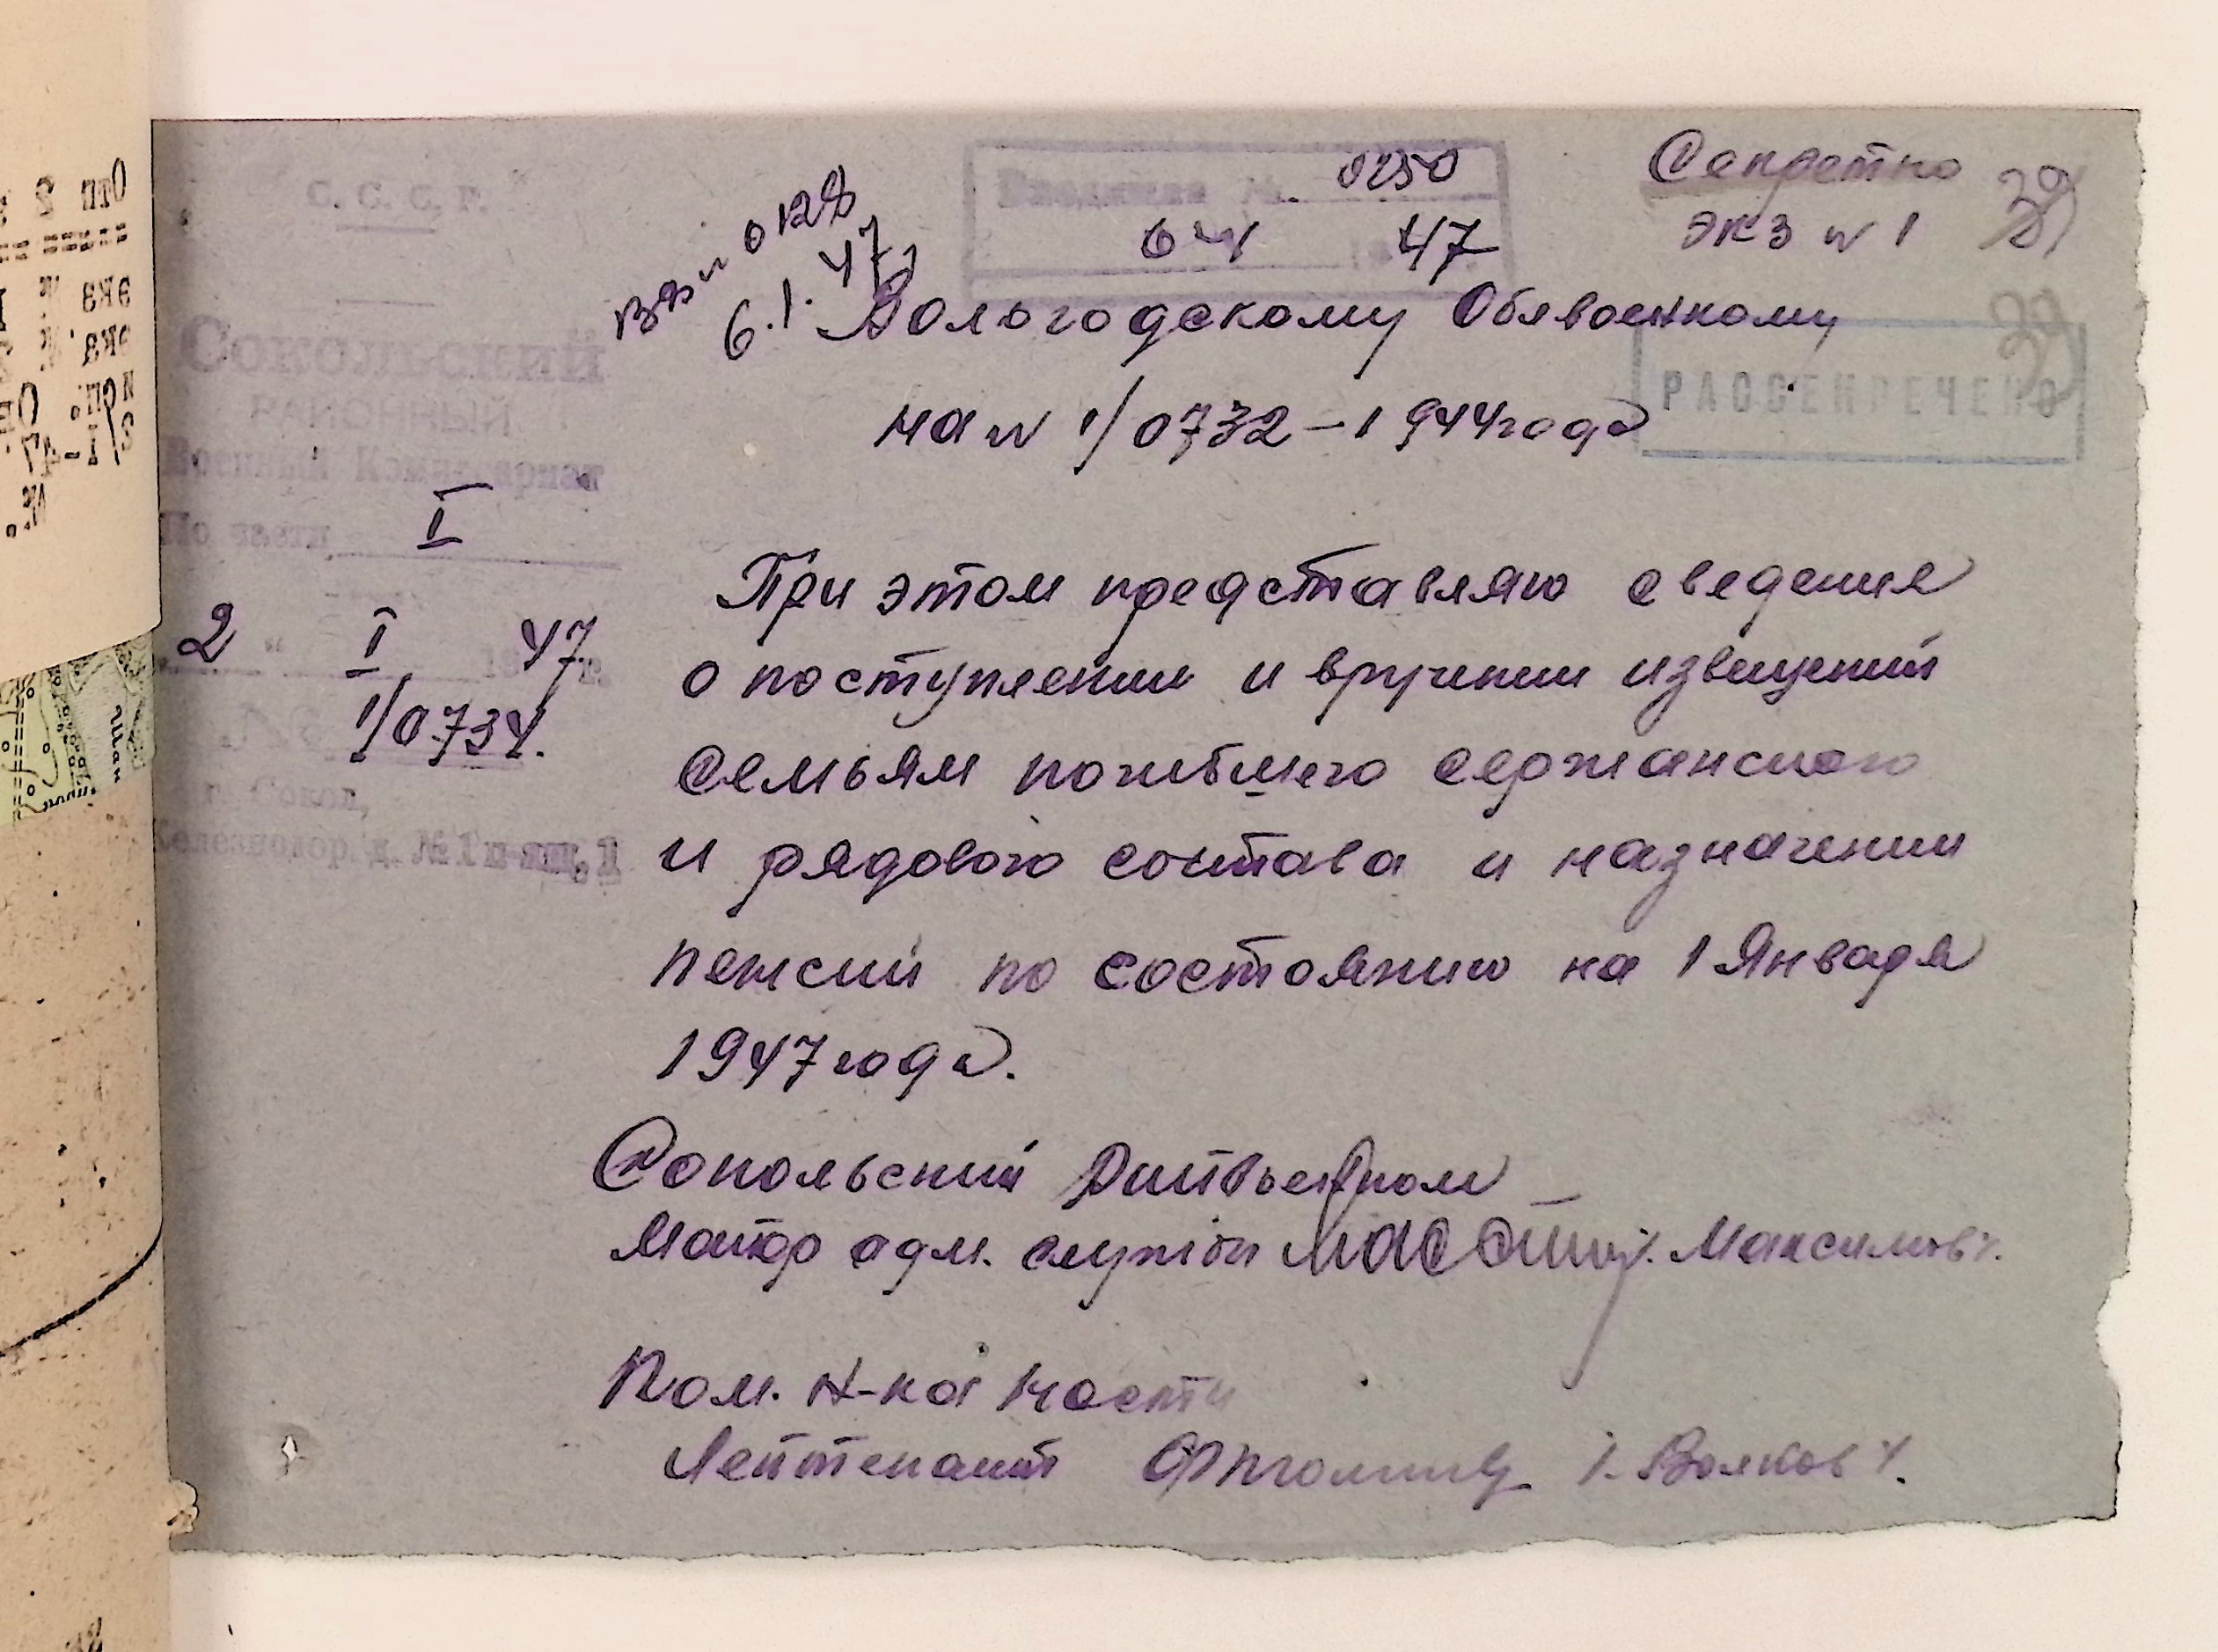 С. С. С. Р.
СОКОЛЬСКИЙ
РАЙОННЫЙ
Военный Комиссариат
По части I
2 I 47 г.
1/0734.
г. Сокол,
Железнодор. д. № 1 п-ящ. 1
вх н 0128
6.1.47
Входящая №. 0250
6 47
Секретно
экз N 1
39
39
РАССЕКРЕЧЕНО
Вологодскому Облвоенкому
на N 1/0732-1944года
При этом представляю сведения
о поступлении и вручении извещений
семьям погибшего сержанского
и рядового состава и назначении
пенсий по состоянию на 1 Января
1947 года.
Сокольский Райвоенком –
Майор адм. службы /. Максимов /.
Пом. Н-ка 1 части
Лейтенант /. Волков /.
Отп 2
экз № 1
экз. №
исп.
3/I-47.
Шан